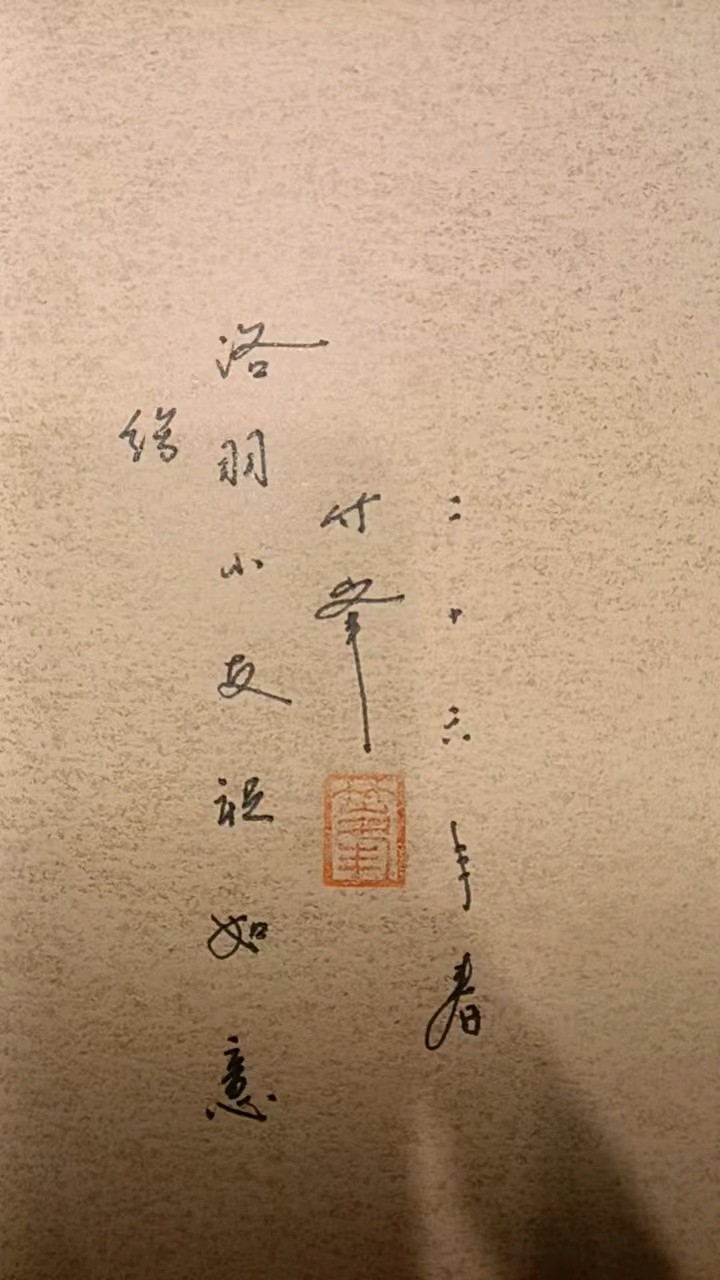 洛羽小友祝如意
二十六年春